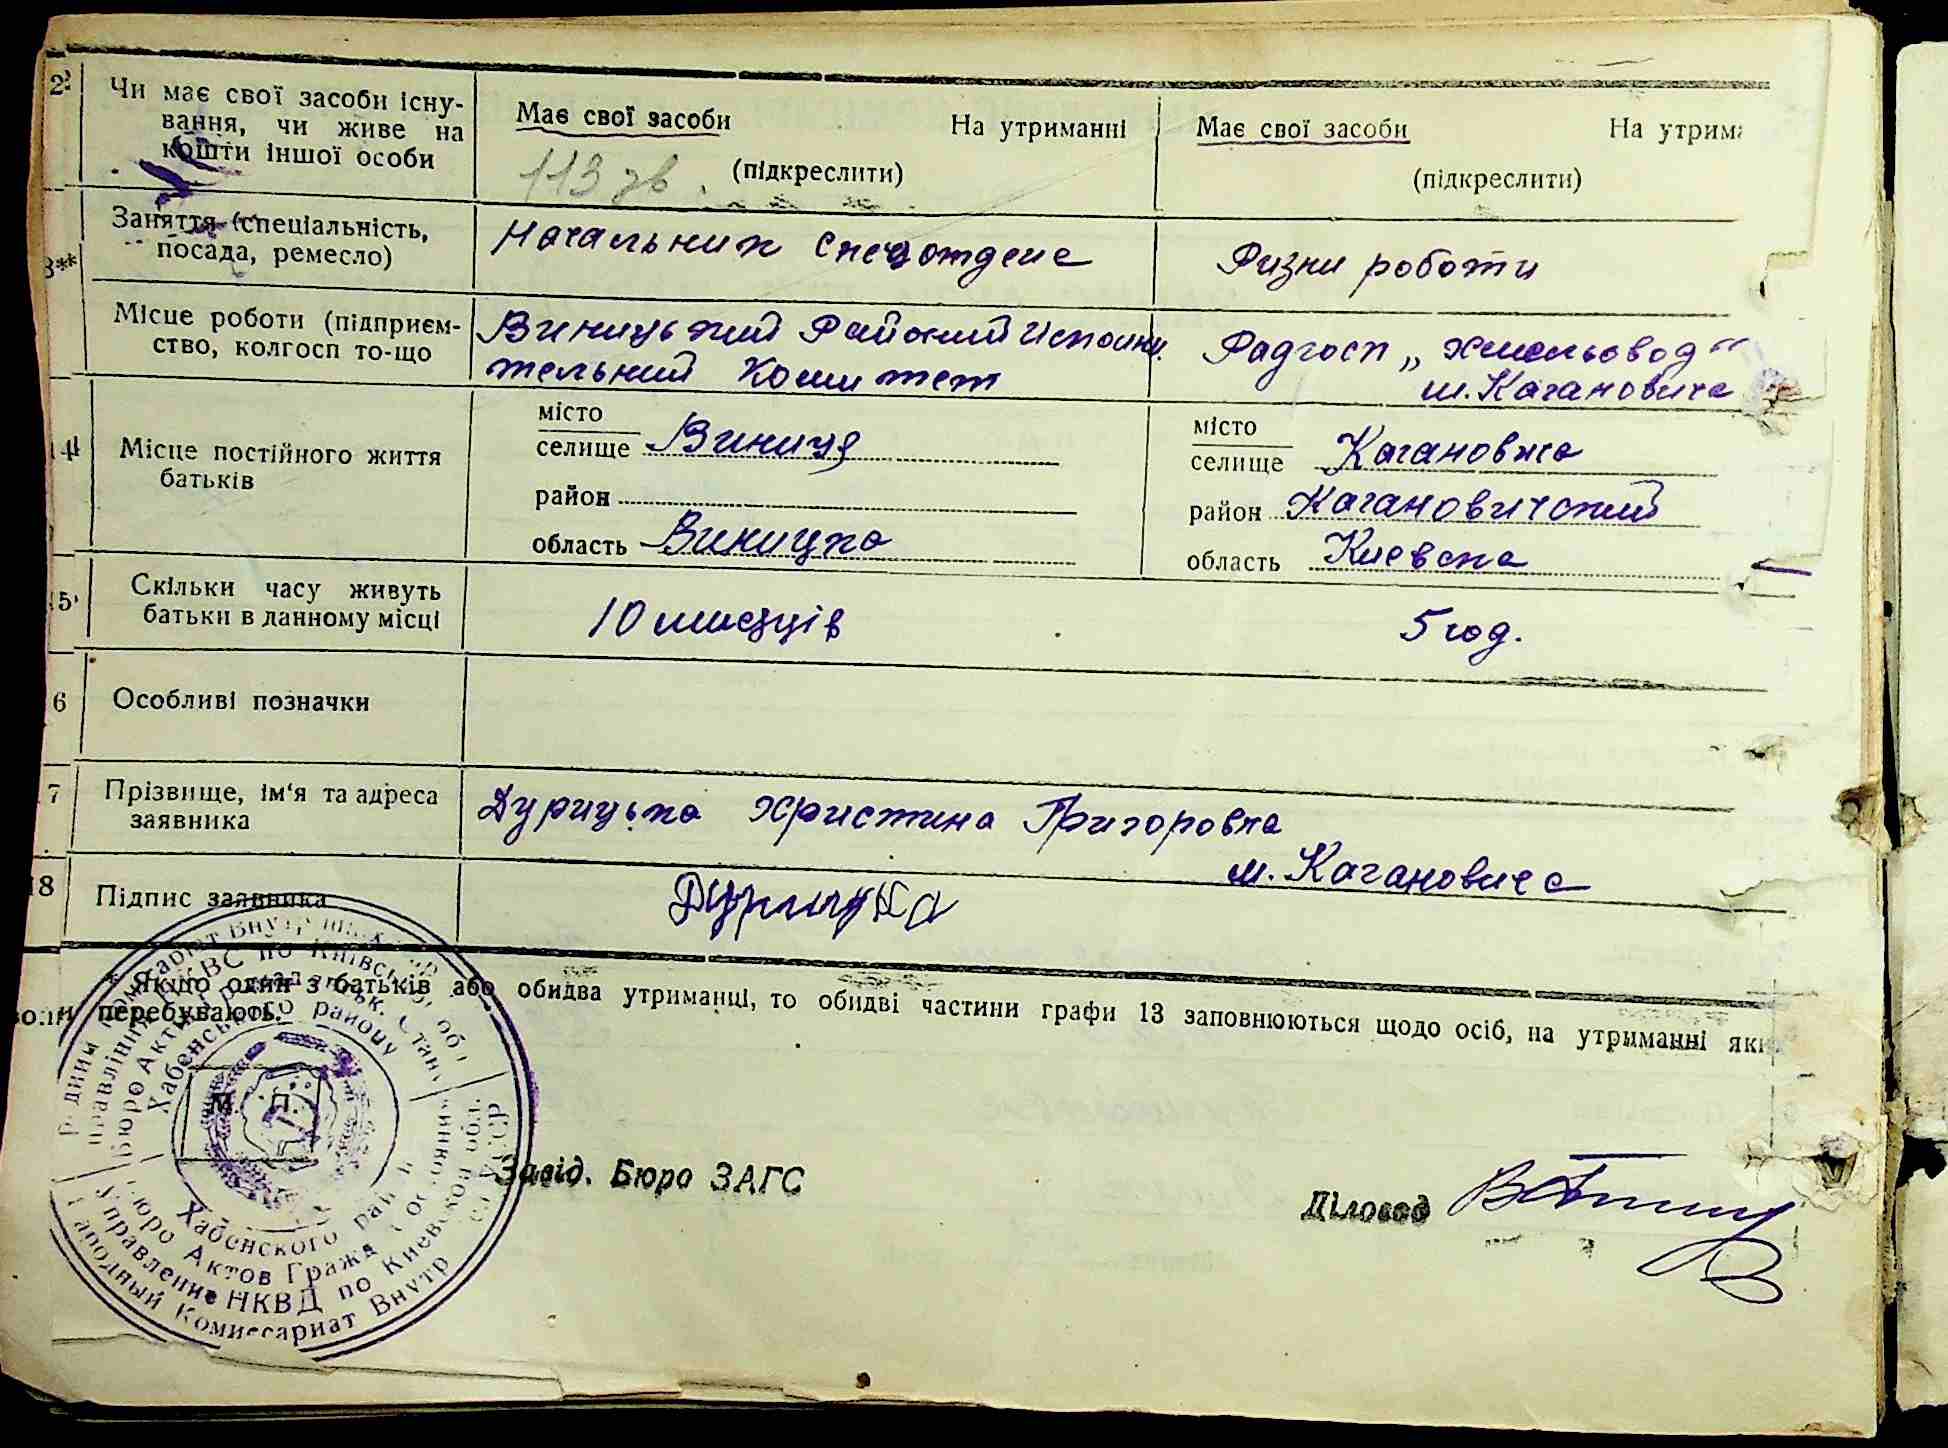 2
Чи має свої засоби існу-
вання, чи живе на
кошти іншої особи
Має свої засоби На утриманні
113 зв.
(підкреслити)
Має свої засоби На утрима
(підкреслити)
3**
Заняття (спеціальність,
посада, ремесло)
Начальник спецотдела
Ризни роботи
Місце роботи (підприєм-
ство, колгосп то-що
Виницький Районий Исполни
тельний Комитет
Радгосп „Хмельовод“
м. Кагановича
14
Місце постійного життя
батьків
місто
селище Виниця
район
область Виницка
місто
селище Кагановича
район Кагановичский
область Киевска
15
Скільки часу живуть
батьки в данному місці
10 мисяців
5 год.
6
Особливі позначки
17
Прізвище, ім'я та адреса
заявника
Дурицька Христина Григоровна
м. Кагановича
18
Підпис заявника
Дурицка
Якщо один з батьків або обидва утриманці, то обидві частини графи 13 заповнюються щодо осіб, на утриманні яких
вони перебувають.
М. П.
Хабенського району
Хабенского рай
Бюро Актов Гражд
Управление НКВД по Киевской
Народный Комиссариат Внутр
Завід. Бюро ЗАГС
Діловод